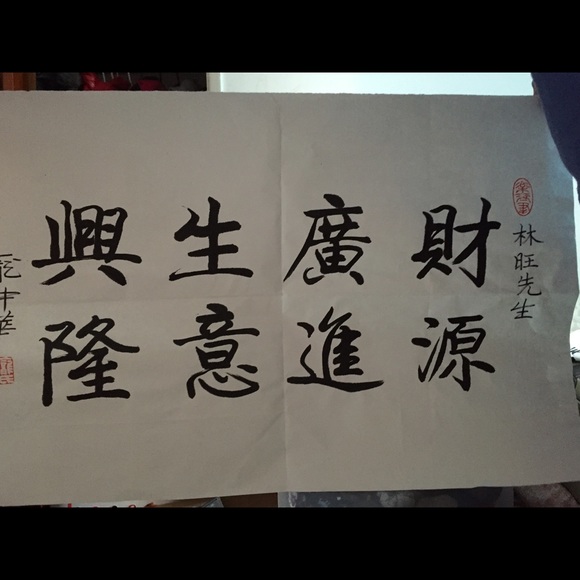 林旺先生
財源
廣進
生意
興隆
中華